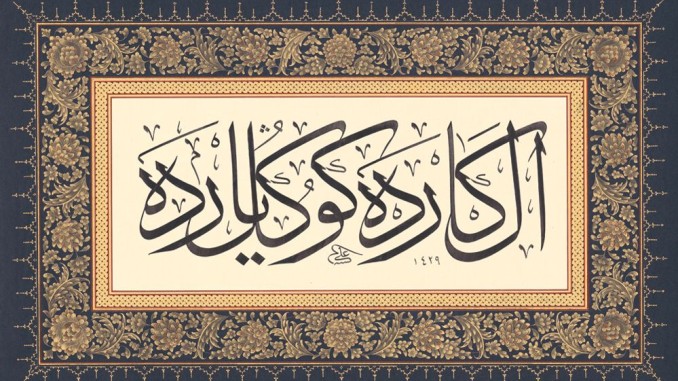 ال كارده كوڭل يارده
١٤٢٩